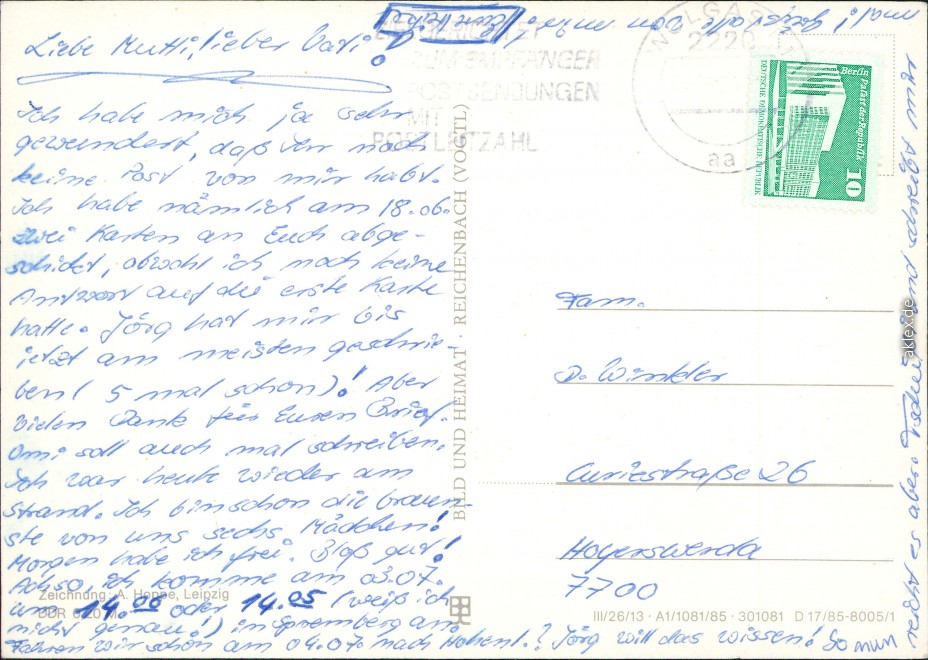 Liebe Mutti, lieber Vati!
Ich habe mich ja sehr
gewundert, daß Ihr noch
keine Post von mir habt.
Ich habe nämlich am 18.06.
zwei Karten an Euch abge-
schickt, obwohl ich noch keine
Antwort auf die erste Karte
hatte. Jörg hat mir bis
jetzt am meisten geschrie-
ben (5 mal schon)! Aber
vielen Dank für Euren Brief.
Omi soll auch mal schreiben.
Ich war heute wieder am
Strand. Ich bin schon die braun
ste von uns sechs Mädchen!
Morgen habe ich frei. Bloß gut!
Achso, ich komme am 03.07.
um 14.00 oder 14.05 (weiß ich
nicht genau!) in Spremberg an.
Fahren wir schon am 04.07. nach Hohent.? Jörg will das wissen! So nun
reicht es aber. Tschüß und schreibt mir
mal! von mir.
ZUM EMPFÄNGER
POSTSENDUNGEN
MIT
POSTLEITZAHL
WOLGAST 1
2220
aa
Berlin Palast der Republik
DEUTSCHE DEMOKRATISCHE REPUBLIK
10
BILD UND HEIMAT · REICHENBACH (VOGTL)
Fam.
D. Winkler
Curiestraße 26
Hoyerswerda
7700
Zeichnung: A. Hoppe, Leipzig
DDR 0,20 M
III/26/13 · A1/1081/85 · 301081 D 17/85-8005/1
aklex.de